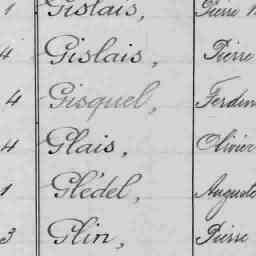 1 Gislais, Pierre
4 Gislais, Pierre
4 Gisquel, Ferdin
4 Glais, Olivier
1 Glédel, Auguste
3 Glin, Pierre